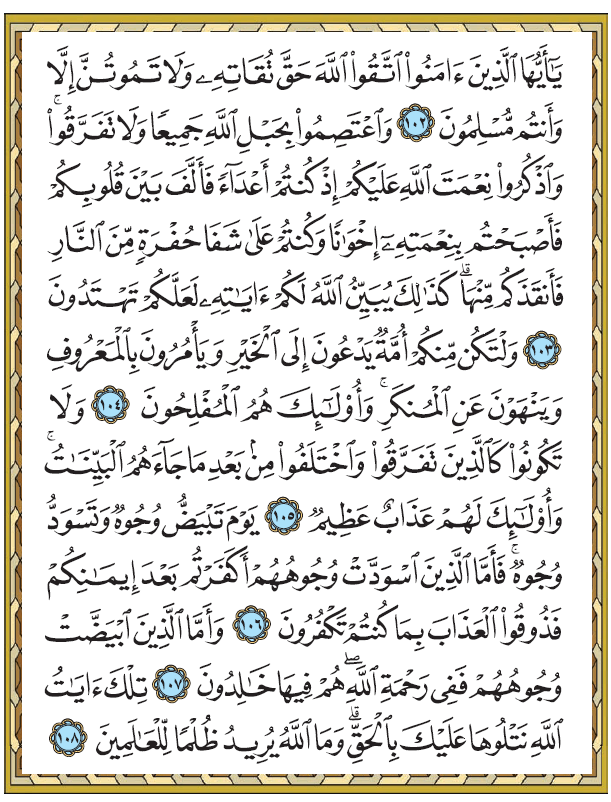 يَٰٓأَيُّهَا ٱلَّذِينَ ءَامَنُواْ ٱتَّقُواْ ٱللَّهَ حَقَّ تُقَاتِهِۦ وَلَا تَمُوتُنَّ إِلَّا
وَأَنتُم مُّسۡلِمُونَ ١٠٢ وَٱعۡتَصِمُواْ بِحَبۡلِ ٱللَّهِ جَمِيعٗا وَلَا تَفَرَّقُواْۚ
وَٱذۡكُرُواْ نِعۡمَتَ ٱللَّهِ عَلَيۡكُمۡ إِذۡ كُنتُمۡ أَعۡدَآءٗ فَأَلَّفَ بَيۡنَ قُلُوبِكُمۡ
فَأَصۡبَحۡتُم بِنِعۡمَتِهِۦٓ إِخۡوَٰنٗا وَكُنتُمۡ عَلَىٰ شَفَا حُفۡرَةٖ مِّنَ ٱلنَّارِ
فَأَنقَذَكُم مِّنۡهَاۗ كَذَٰلِكَ يُبَيِّنُ ٱللَّهُ لَكُمۡ ءَايَٰتِهِۦ لَعَلَّكُمۡ تَهۡتَدُونَ
١٠٣ وَلۡتَكُن مِّنكُمۡ أُمَّةٞ يَدۡعُونَ إِلَى ٱلۡخَيۡرِ وَيَأۡمُرُونَ بِٱلۡمَعۡرُوفِ
وَيَنۡهَوۡنَ عَنِ ٱلۡمُنكَرِۚ وَأُوْلَٰٓئِكَ هُمُ ٱلۡمُفۡلِحُونَ ١٠٤ وَلَا
تَكُونُواْ كَٱلَّذِينَ تَفَرَّقُواْ وَٱخۡتَلَفُواْ مِنۢ بَعۡدِ مَا جَآءَهُمُ ٱلۡبَيِّنَٰتُۚ
وَأُوْلَٰٓئِكَ لَهُمۡ عَذَابٌ عَظِيمٞ ١٠٥ يَوۡمَ تَبۡيَضُّ وُجُوهٞ وَتَسۡوَدُّ
وُجُوهٞۚ فَأَمَّا ٱلَّذِينَ ٱسۡوَدَّتۡ وُجُوهُهُمۡ أَكَفَرۡتُم بَعۡدَ إِيمَٰنِكُمۡ
فَذُوقُواْ ٱلۡعَذَابَ بِمَا كُنتُمۡ تَكۡفُرُونَ ١٠٦ وَأَمَّا ٱلَّذِينَ ٱبۡيَضَّتۡ
وُجُوهُهُمۡ فَفِي رَحۡمَةِ ٱللَّهِۖ هُمۡ فِيهَا خَٰلِدُونَ ١٠٧ تِلۡكَ ءَايَٰتُ
ٱللَّهِ نَتۡلُوهَا عَلَيۡكَ بِٱلۡحَقِّۗ وَمَا ٱللَّهُ يُرِيدُ ظُلۡمٗا لِّلۡعَٰلَمِينَ ١٠٨